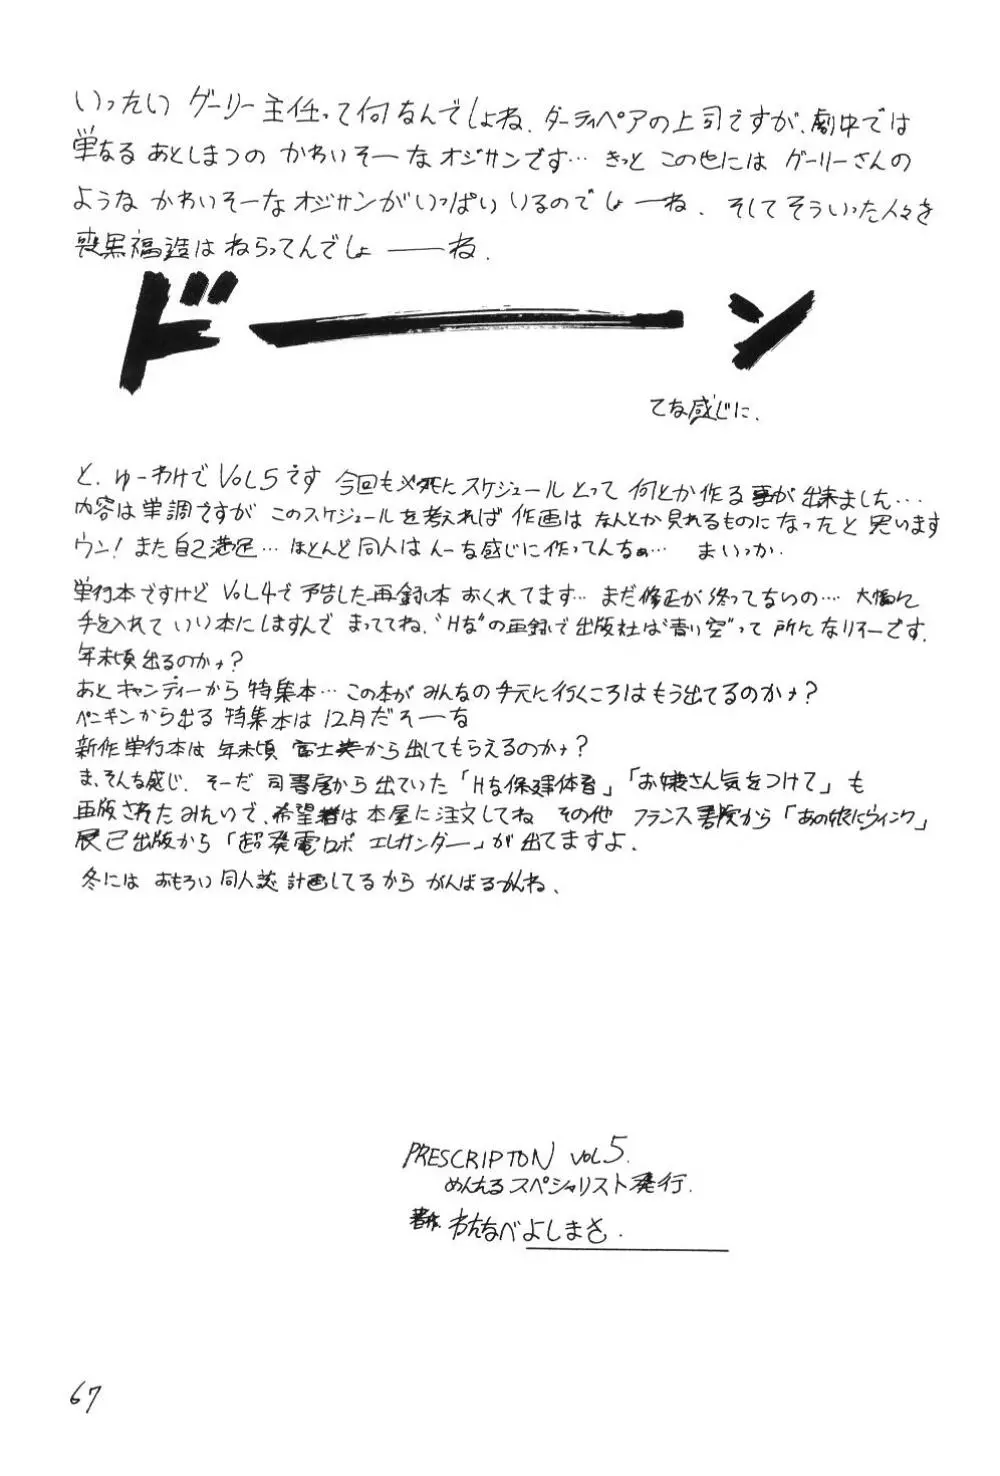 いったい グーリー主任って何なんでしょね、ダーティペアの上司ですが、劇中では
単なる あとしまつの かわいそーな オジサンです… きっと この世には グーリーさんの
ような かわいそーな オジサンが いっぱい いるのでしょーね、そして そういった人々を
喪黒福造は ねらってんでしょ——ね.
ドーン
てな感じに、
と、ゆーわけで VOL5です 今回も必死にスケジュールとって 何とか作る事が出来ました…
内容は単調ですが このスケジュールを考えれば 作画は なんとか見れるものになったと思います
ウン! また自己満足… ほとんど同人は んーな感じに作ってんなぁ… まいっか.
単行本ですけど VOL4で予告した再録本 おくれてます… まだ修正が終ってないの… 大幅に
手を入れて いい本にしますんで まっててね、"Hな"の再録で出版社は"青い空"って 所になりそーです.
年末頃出るのかナ?
あと キャンディーから 特集本… この本が みんなの手元に行くころはもう出てるのかナ?
ペンギンから出る 特集本は 12月だそーな
新作単行本は 年末頃 富士美から出してもらえるのかナ?
ま、そんな感じ. そーだ 司書房から出ていた「Hな保健体育」「お嬢さん気をつけて」も
再版されたみたいで、希望者は本屋に注文してね その他 フランス書院から「あの娘にウィンク」
辰己出版から「超発電ロボ エレサンダー」が出てますよ.
冬には おもろい 同人誌 計画してるから がんばるかんね、
PRESCRIPTON VOL5.
めんたるスペシャリスト発行.
著作. わたなべよしまさ.
67